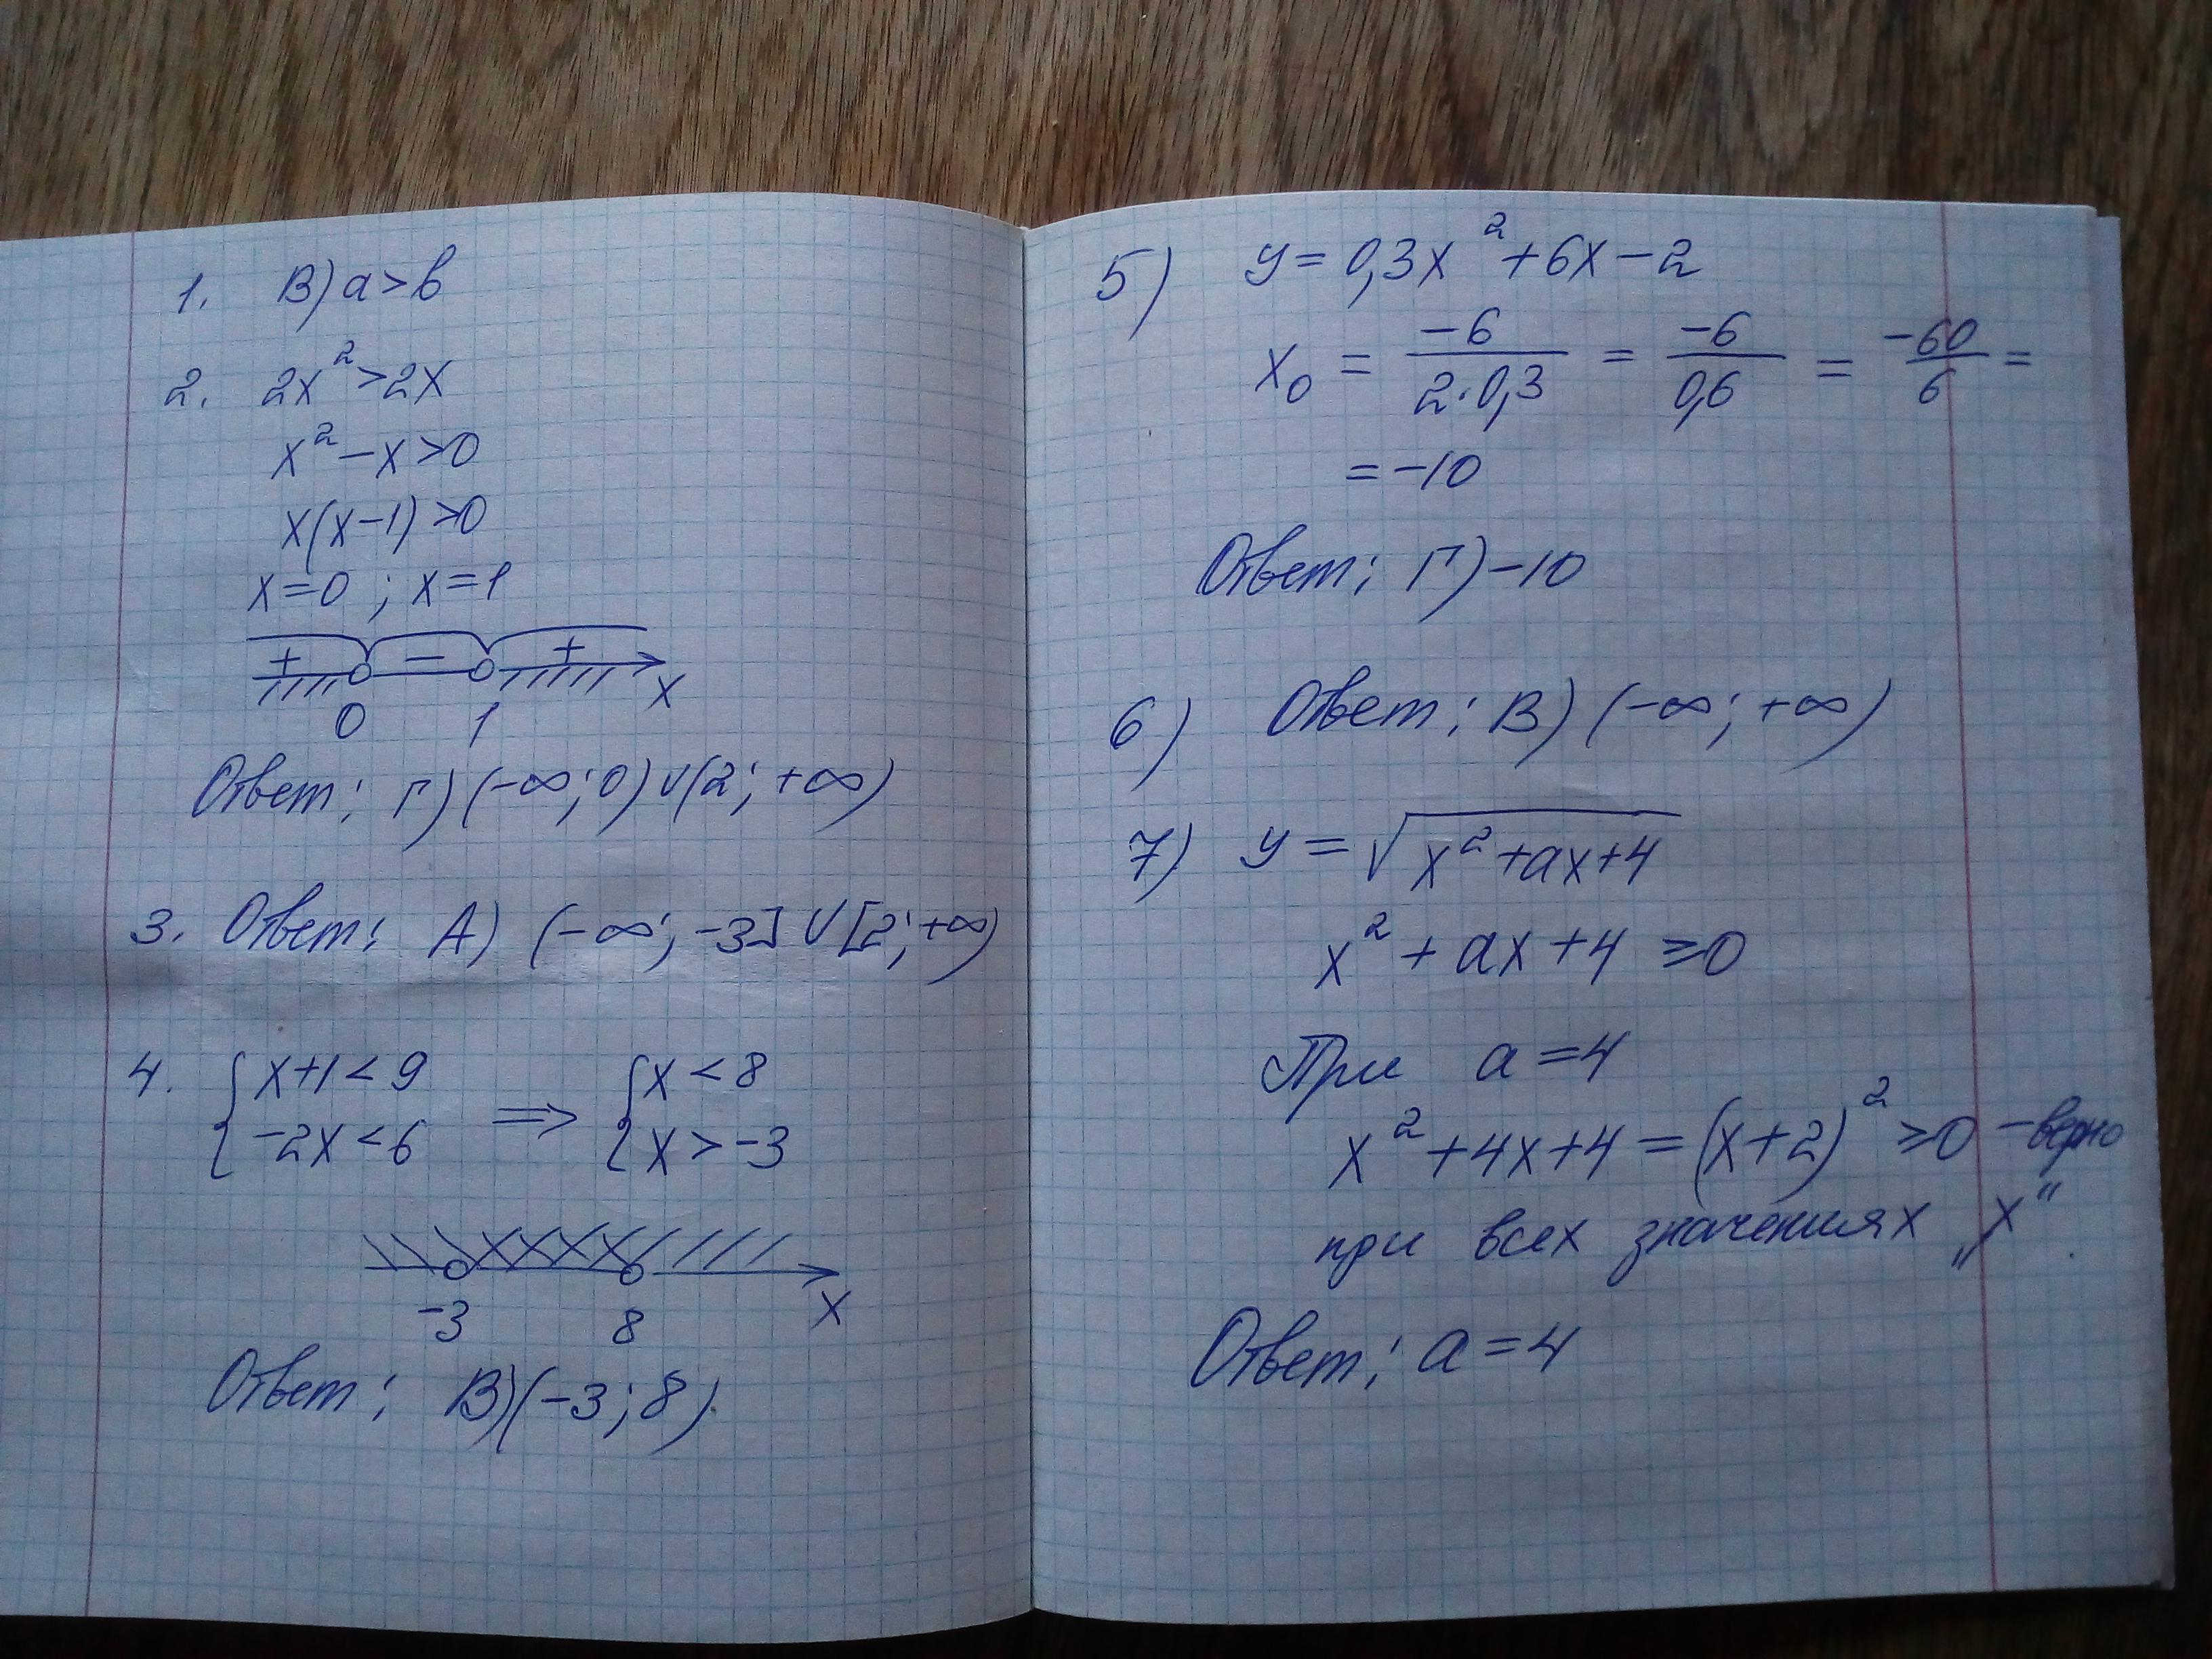 1. В) a > b
2. 2x² > 2x
x² − x > 0
x(x−1) > 0
x = 0 ; x = 1
+ − +
0 1 x
Ответ: Г) (−∞; 0) ∪ (2; +∞)
3. Ответ: А) (−∞; −3] ∪ [2; +∞)
4. { x+1 < 9 ⟹ { x < 8
−2x < 6 x > −3
−3 8 x
Ответ: В) (−3; 8).
5) y = 0,3x² + 6x − 2
x₀ = −6/(2·0,3) = −6/0,6 = −60/6 =
= −10
Ответ: Г) −10
6) Ответ: В) (−∞; +∞)
7) y = √(x² + ax + 4)
x² + ax + 4 ≥ 0
При a = 4
x² + 4x + 4 = (x+2)² ≥ 0 − верно
при всех значениях „x“.
Ответ: a = 4